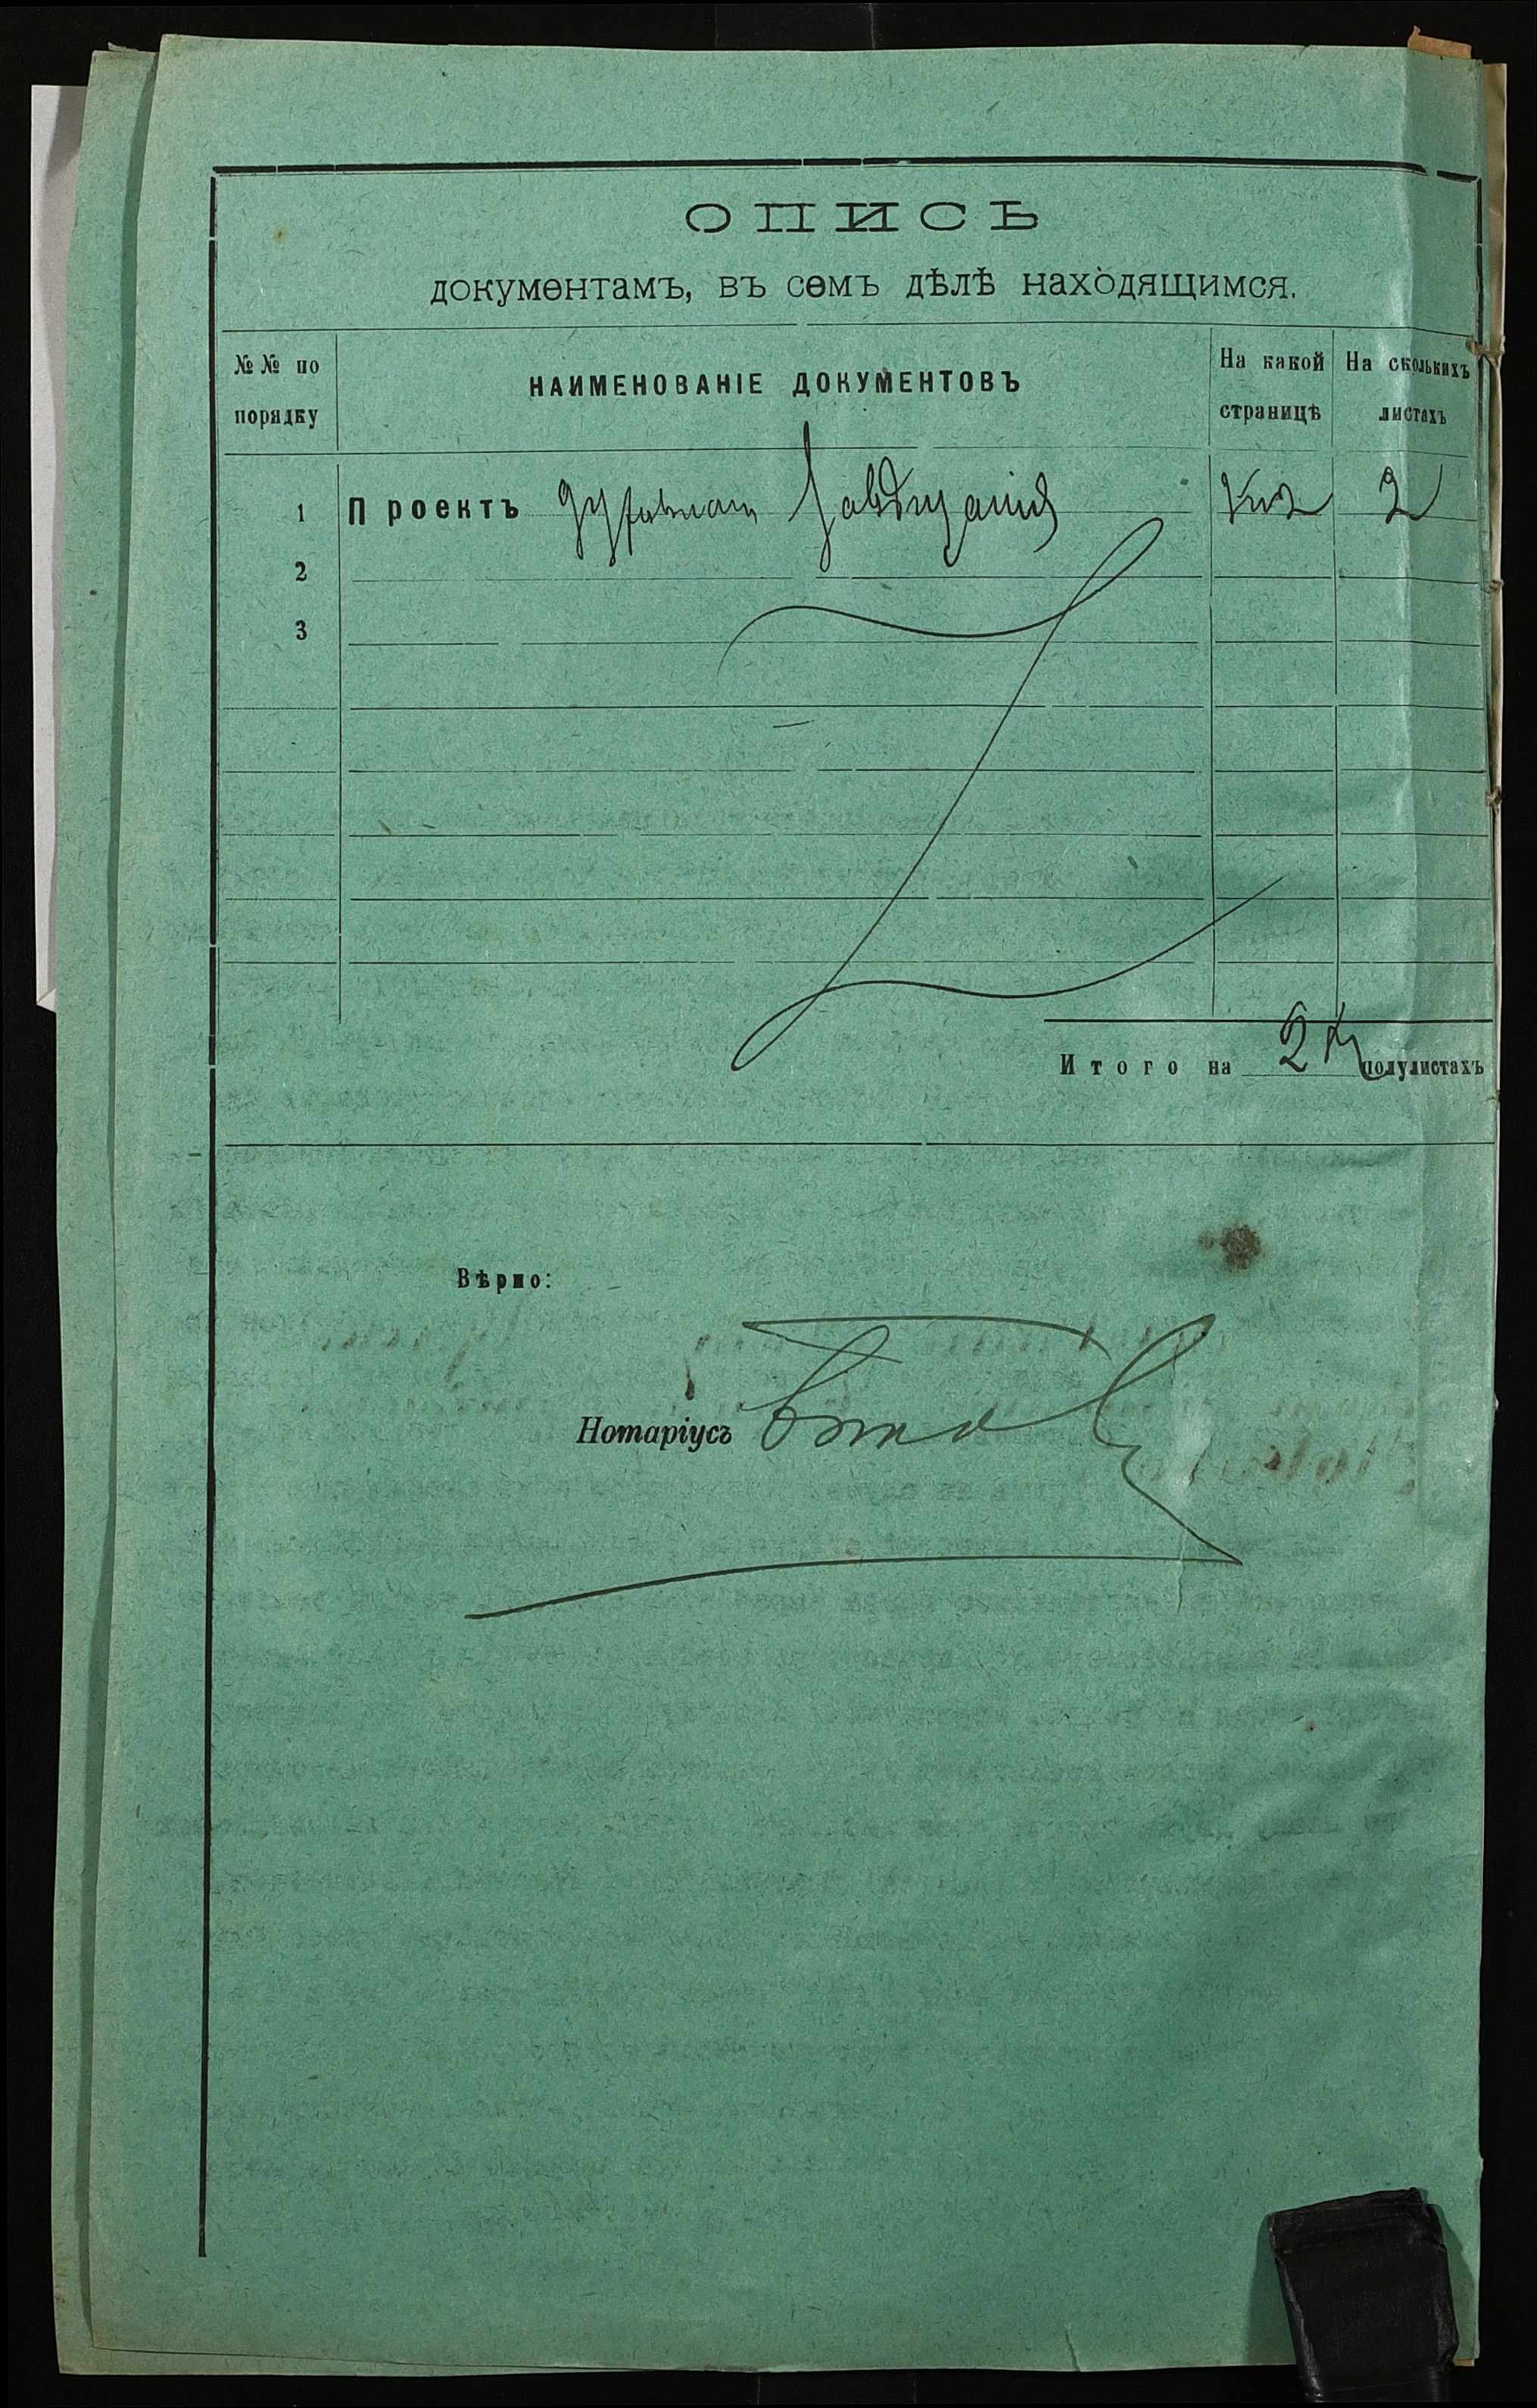 ОПИСЬ
документамъ, въ семъ дѣлѣ находящимся.
№№ по порядку
НАИМЕНОВАНІЕ ДОКУМЕНТОВЪ
На какой страницѣ
На сколькихъ листахъ
1 Проектъ духовнаго завѣщанія 1 и 2 2
2
3
Итого на 2х полулистахъ
Вѣрно:
Нотаріусъ